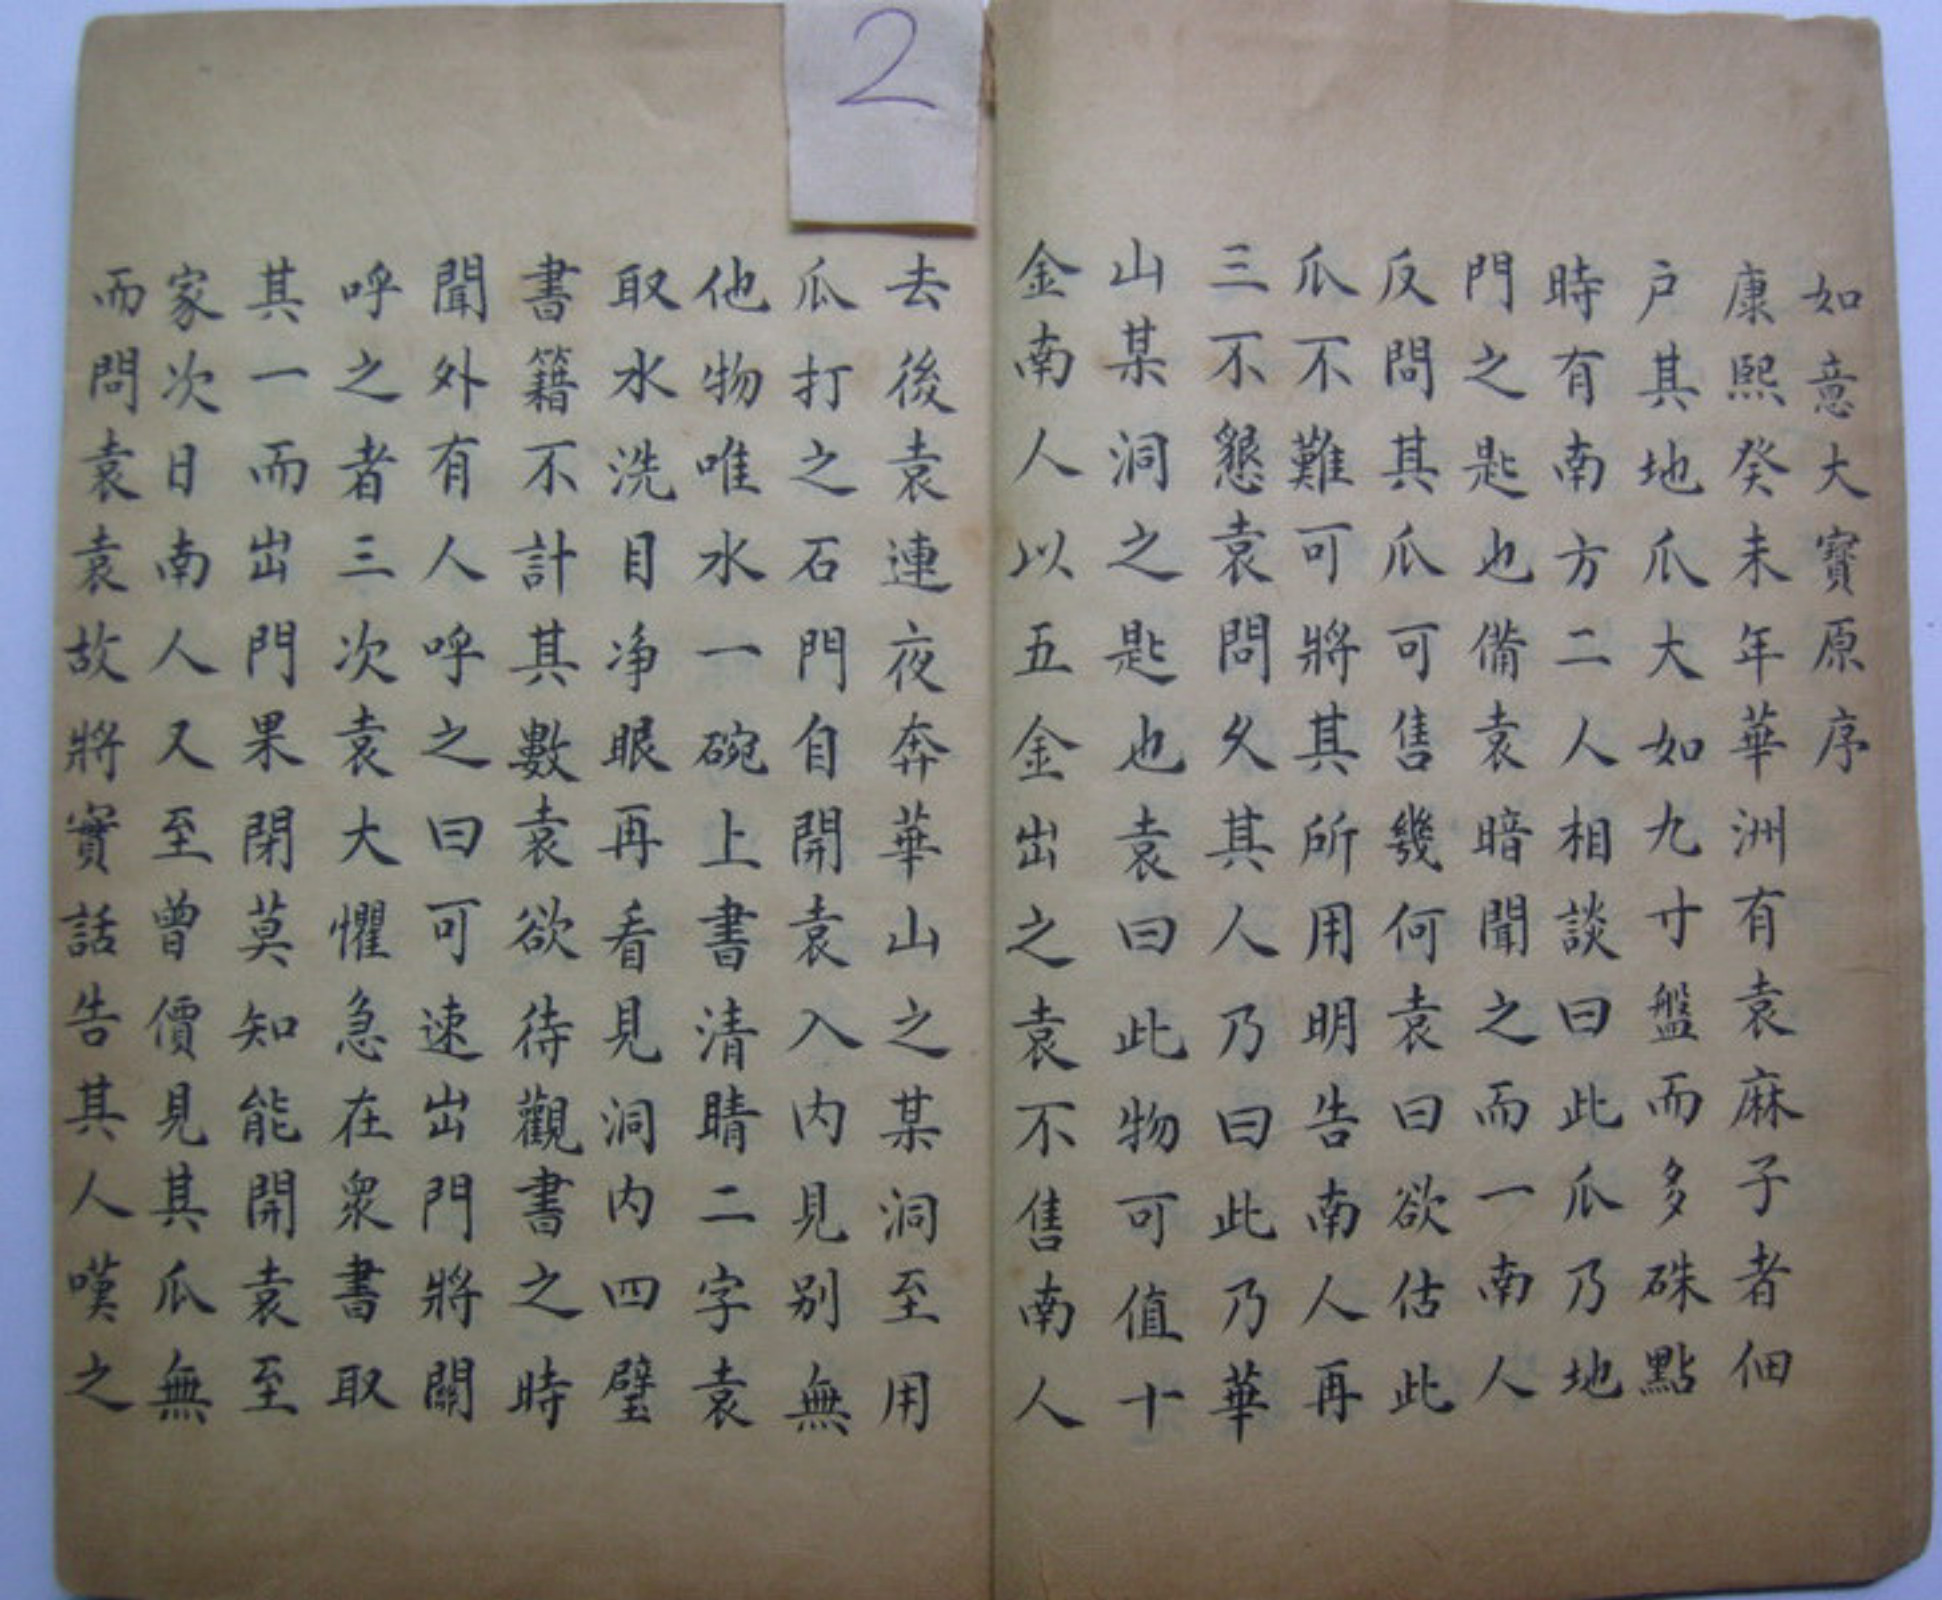 2
如意大寶原序
康熙癸未年華洲有袁麻子者佃
戶其地瓜大如九寸盤而多硃點
時有南方二人相談曰此瓜乃地
門之匙也備袁暗聞之而一南人
反問其瓜可售幾何袁曰欲估此
瓜不難可將其所用明告南人再
三不懇袁問久其人乃曰此乃華
山某洞之匙也袁曰此物可值十
金南人以五金出之袁不售南人
去後袁連夜奔華山之某洞至用
瓜打之石門自開袁入內見別無
他物唯水一碗上書清睛二字袁
取水洗目净眼再看見洞內四壁
書籍不計其數袁欲待觀書之時
聞外有人呼之曰可速出門將關
呼之者三次袁大懼急在衆書取
其一而出門果閉莫知能開袁至
家次日南人又至曾價見其瓜無
而問袁袁故將實話告其人嘆之